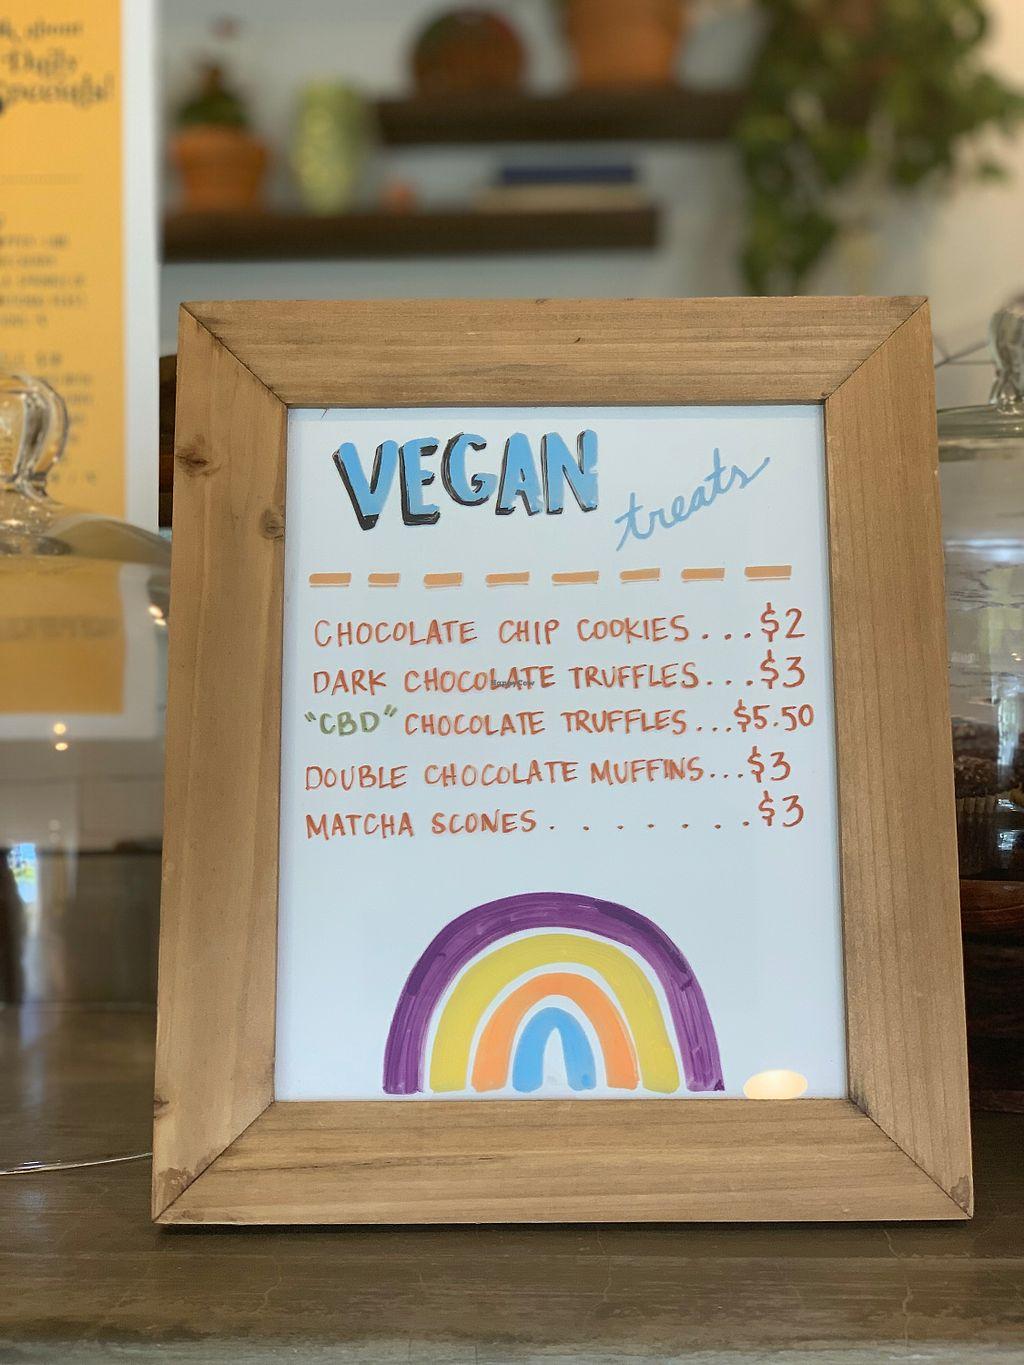 about
Daily
Specials!
VEGAN treats
CHOCOLATE CHIP COOKIES...$2
DARK CHOCOLATE TRUFFLES...$3
"CBD" CHOCOLATE TRUFFLES...$5.50
DOUBLE CHOCOLATE MUFFINS...$3
MATCHA SCONES.......$3
HappyCow